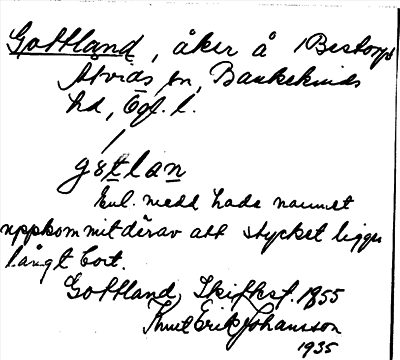 Gottland, åker å Bestorps
Atvids sn, Bankekinds
hd, Ögl. l.
gøtlan
Enl. medd hade namnet
uppkommit därav att stycket ligger
långt bort.
Gottland, Skifteskt. 1855
Knut Erik Johansson
1935